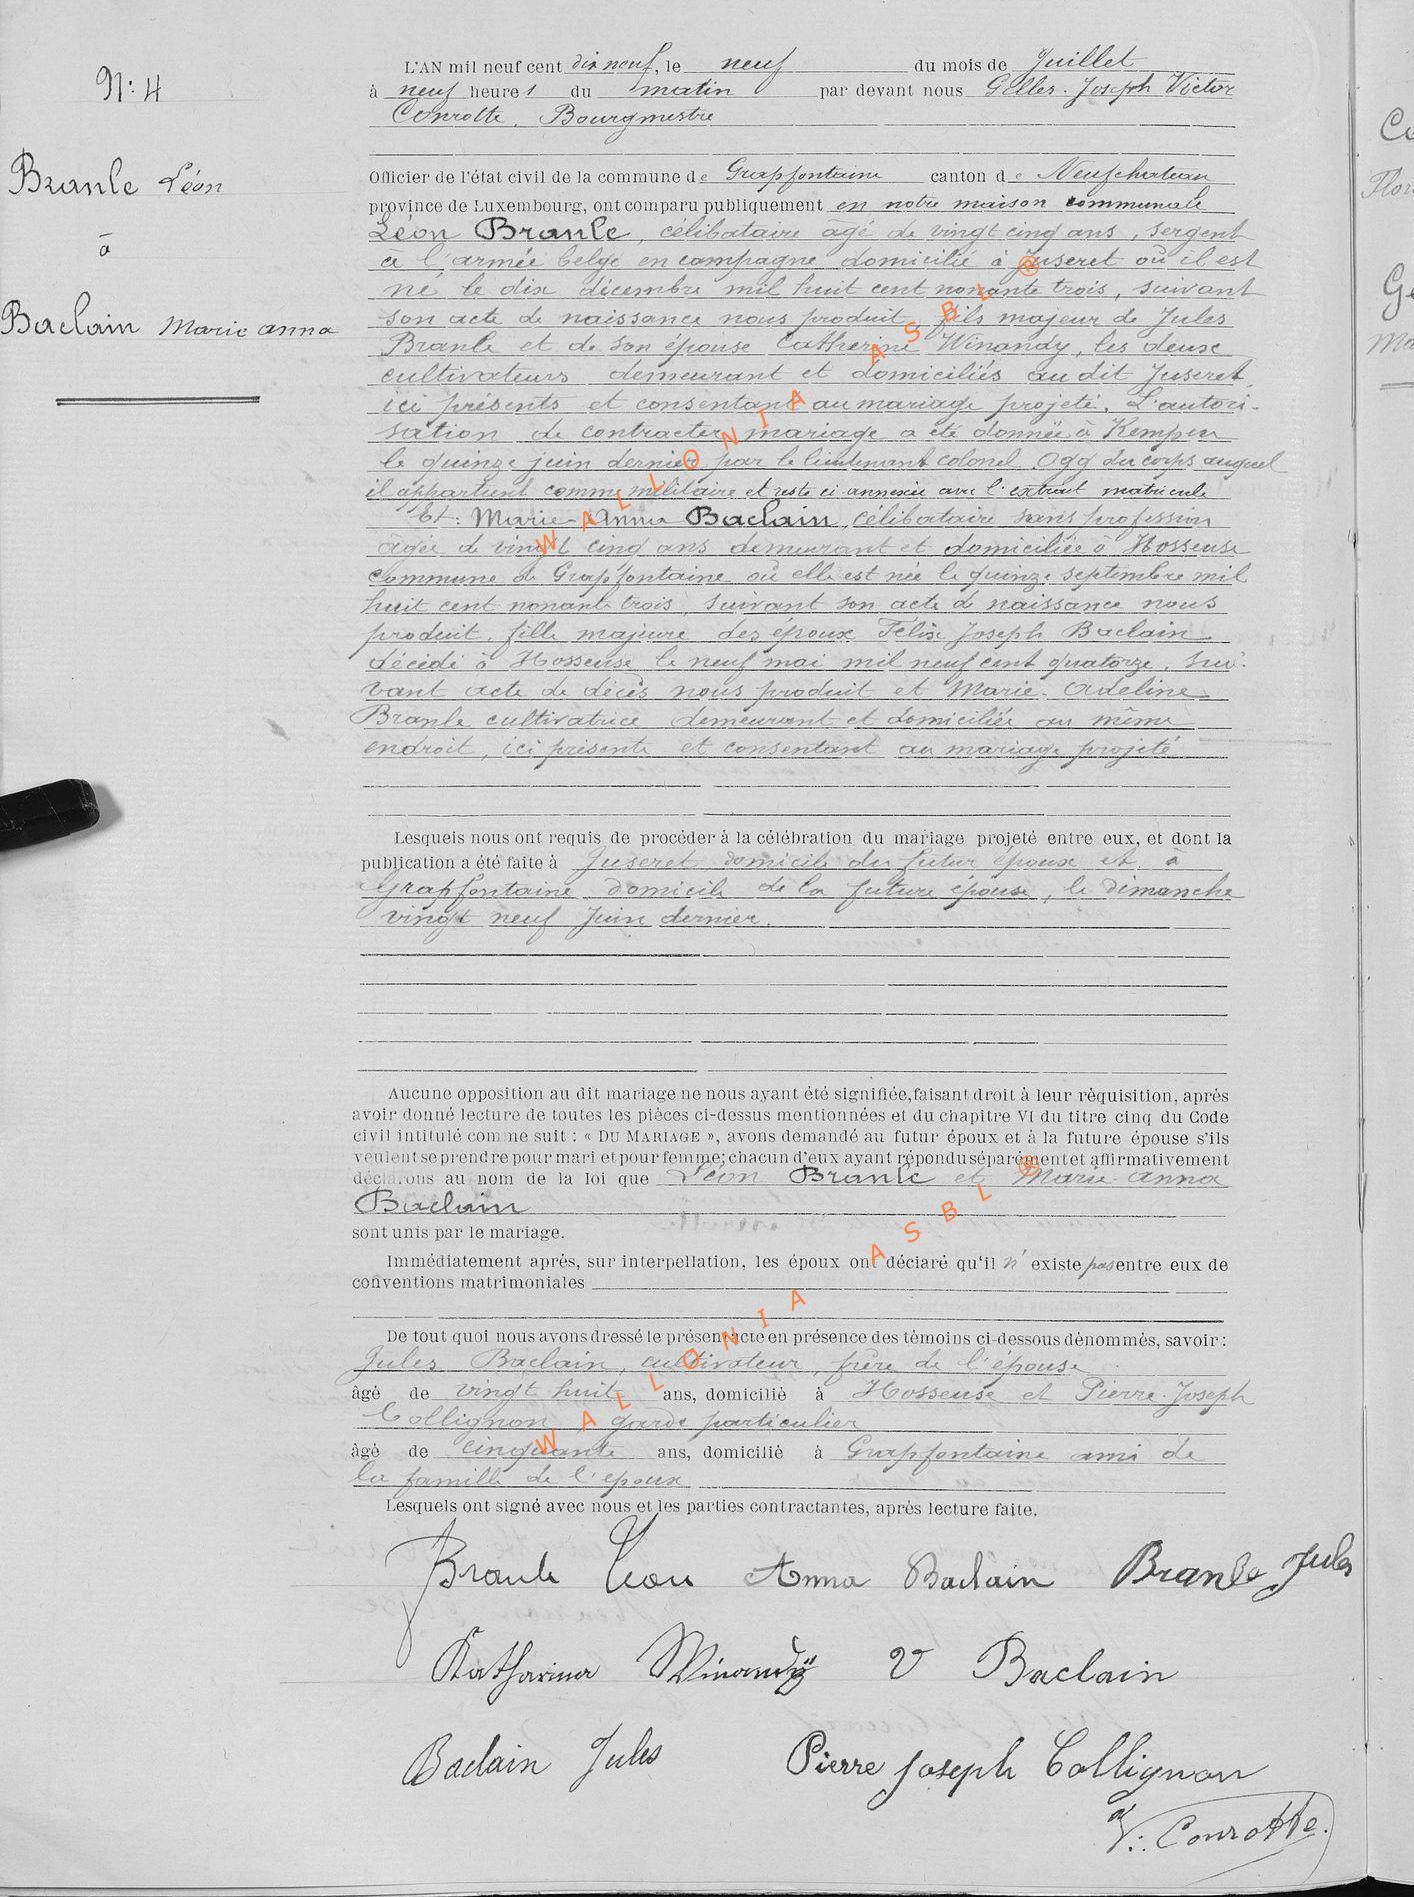 N: 4
Branle Léon
à
Baclain Marie anna
L'AN mil neuf cent dix neuf, le neuf du mois de Juillet
à neuf heures du matin par devant nous Gilles-Joseph Victor
Conrotte, Bourgmestre
Officier de l'état civil de la commune de Grapfontaine canton de Neufchateau
province de Luxembourg, ont comparu publiquement en notre maison communale
Léon Branle, célibataire âgé de vingt cinq ans, sergent
à l'armée belge en campagne domicilié à Juseret où il est
né le dix décembre mil huit cent nonante trois, suivant
son acte de naissance nous produit, fils majeur de Jules
Branle et de son épouse Catherine Winandy, les deux
cultivateurs demeurant et domiciliés au dit Juseret,
ici présents et consentant au mariage projeté. L'autori-
sation de contracter mariage a été donnée à Kempen
le quinze juin dernier par le lieutenant colonel Ogg du corps auquel
il appartient comme militaire et reste ci-annexée avec l'extrait matricule
Et: Marie-Anna Baclain, célibataire sans profession
âgée de vingt cinq ans demeurant et domiciliée à Hosseuse
commune de Grapfontaine où elle est née le quinze septembre mil
huit cent nonante trois, suivant son acte de naissance nous
produit, fille majeure des époux Félix Joseph Baclain
décédé à Hosseuse le neuf mai mil neuf cent quatorze, sui-
vant acte de décès nous produit et Marie-Adeline
Branle cultivatrice demeurant et domiciliée au même
endroit, ici présente et consentant au mariage projeté
Lesquels nous ont requis de procéder à la célébration du mariage projeté entre eux, et dont la
publication a été faite à Juseret domicile du futur époux et à
Grapfontaine domicile de la future épouse, le dimanche
vingt neuf Juin dernier.
Aucune opposition au dit mariage ne nous ayant été signifiée, faisant droit à leur réquisition, après
avoir donné lecture de toutes les pièces ci-dessus mentionnées et du chapitre VI du titre cinq du Code
civil intitulé comme suit : « DU MARIAGE », avons demandé au futur époux et à la future épouse s'ils
veulent se prendre pour mari et pour femme; chacun d'eux ayant répondu séparément et affirmativement
déclarons au nom de la loi que Léon Branle et Marie-anna
Baclain
sont unis par le mariage.
Immédiatement après, sur interpellation, les époux ont déclaré qu'il n'existe pas entre eux de
conventions matrimoniales
De tout quoi nous avons dressé le présent acte en présence des témoins ci-dessous dénommés, savoir :
Jules Baclain, cultivateur, frère de l'épouse
âgé de vingt huit ans, domicilié à Hosseuse et Pierre-Joseph
Collignon garde particulier
âgé de cinquante ans, domicilié à Grapfontaine ami de
la famille de l'epoux
Lesquels ont signé avec nous et les parties contractantes, après lecture faite.
Branle Léon Anna Baclain Branle Jules
Katharina Winandy V Baclain
Baclain Jules Pierre Joseph Collignon
V. Conrotte.
WALLONIA ASBL ®
WALLONIA ASBL ®